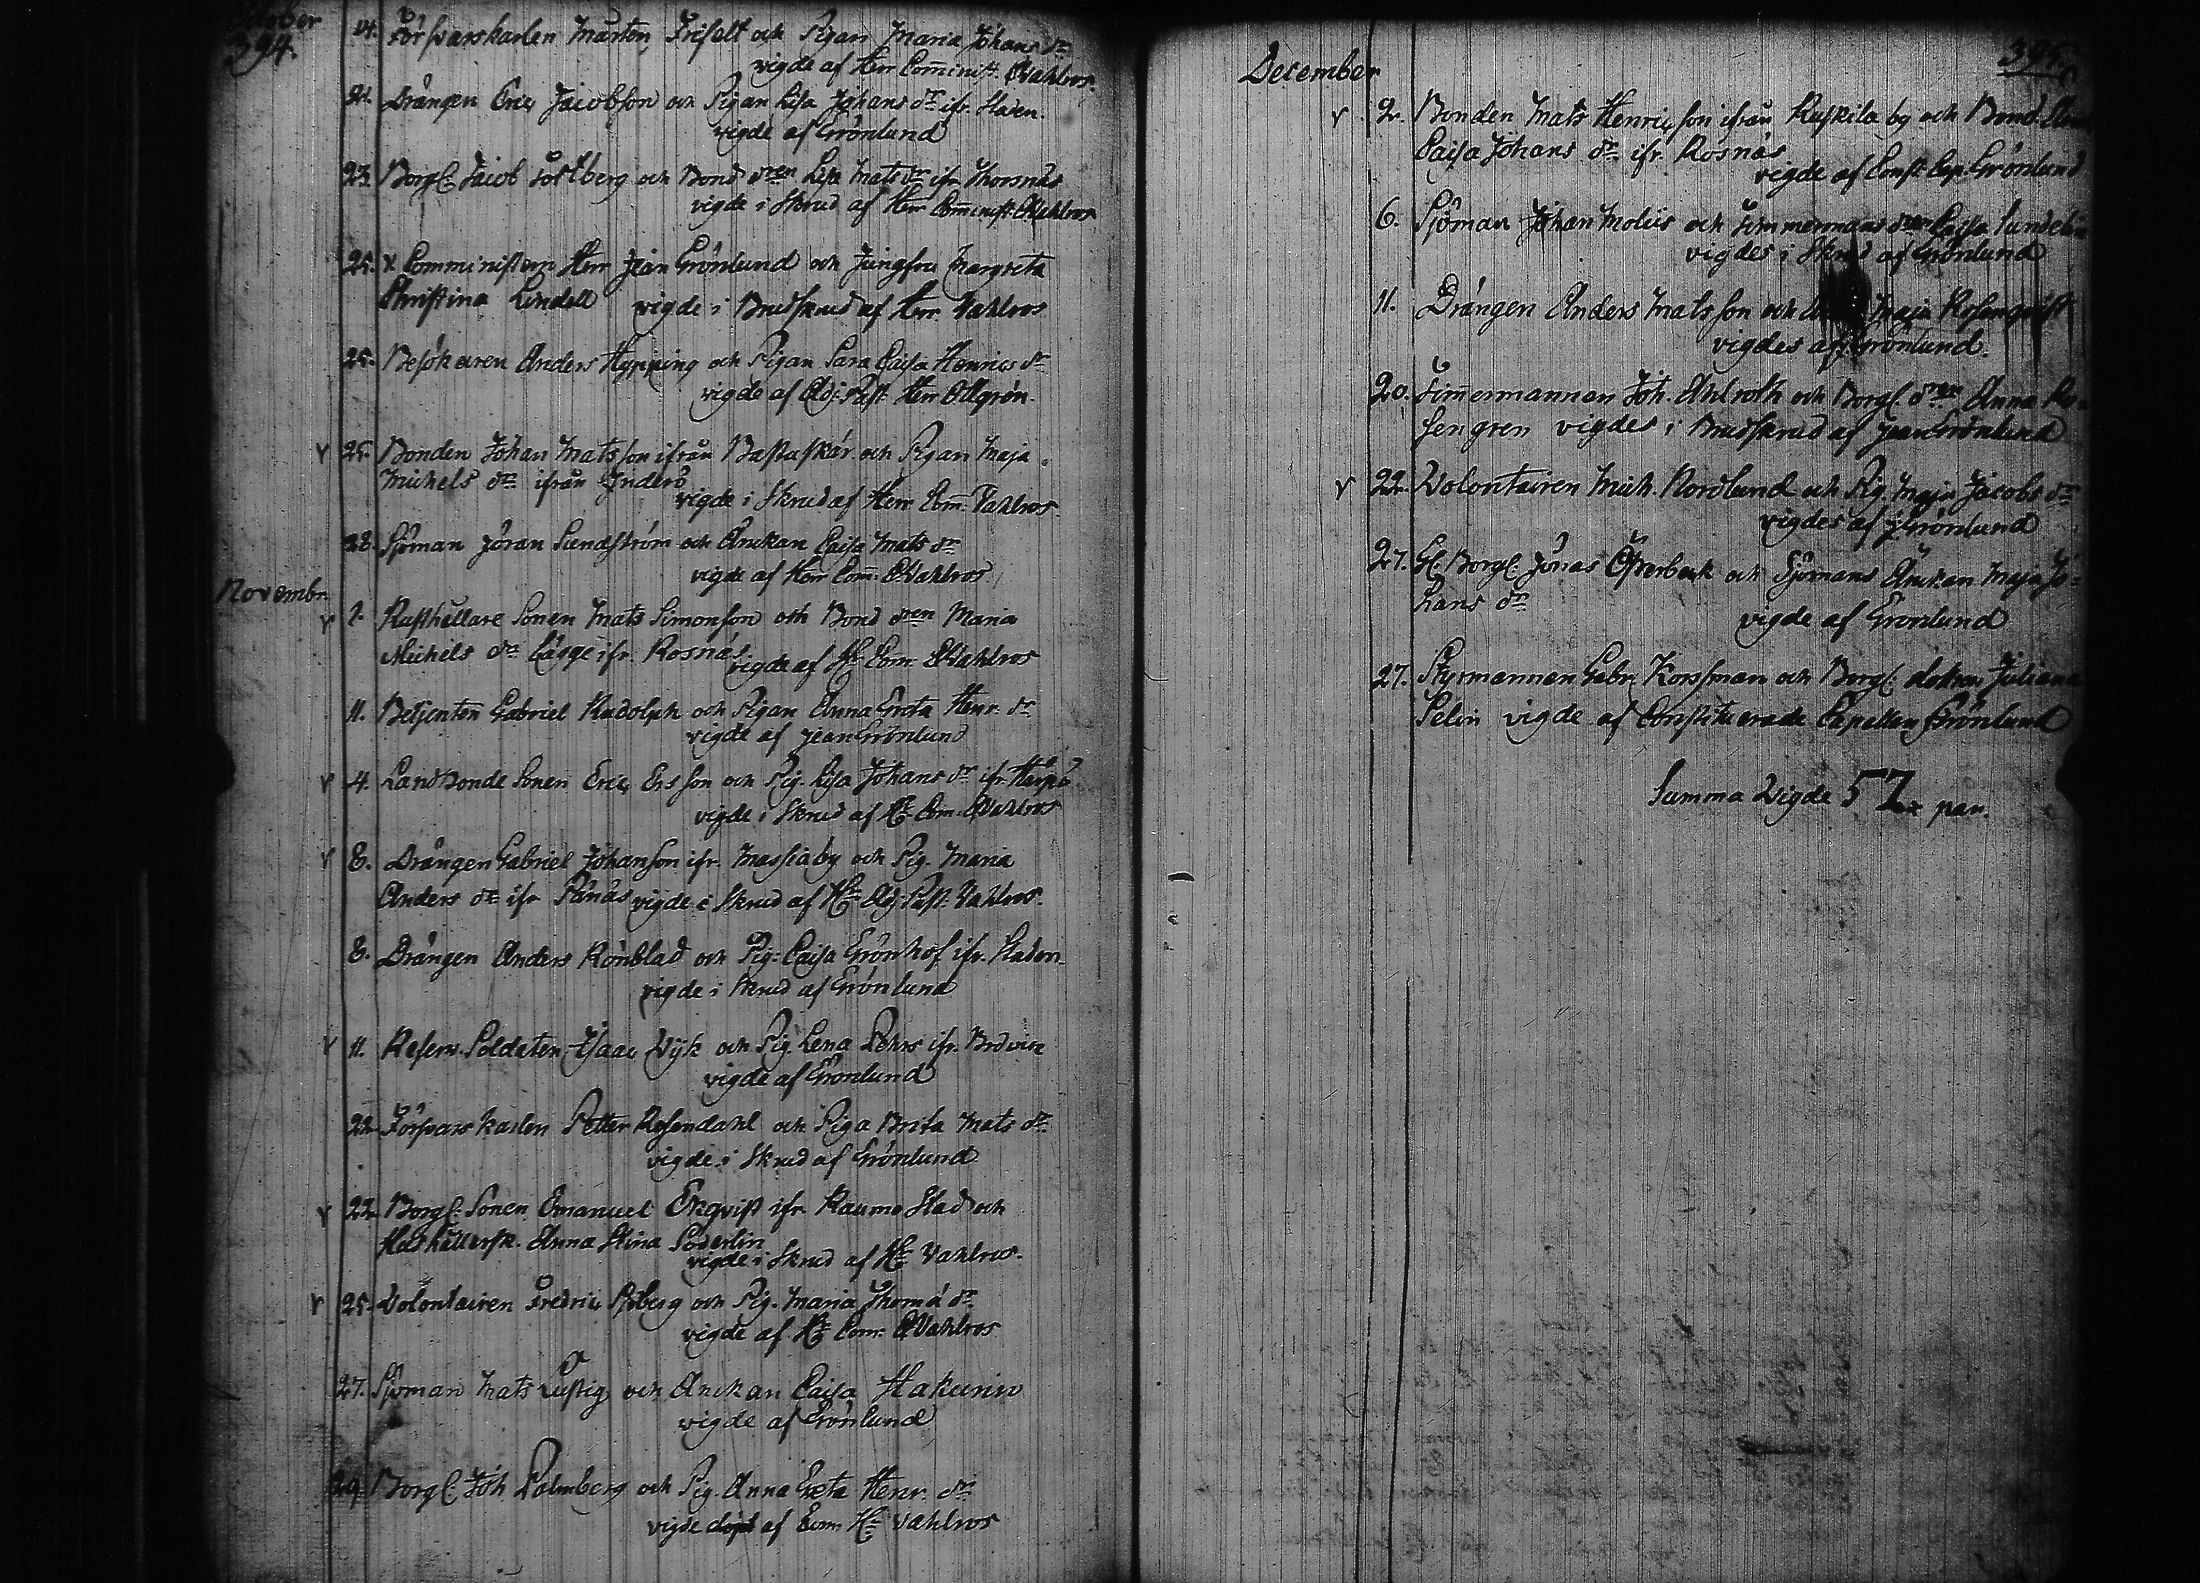 October
394.
14. Försvarskarlen Mårten Frifelt och Pigan Maria Johans dr
vigde af Herr Comminist. Wahlros.
21. Drängen Eric Jacobson och Pigan Lisa Johans dr ifr. Staden.
vigde af Grönlund
23. Borg: Jacob och Bond dren Lisa Mats dr ifr Thorsnäs
vigde i Skrud af Herr Comminist. Wahlros
25. x Comministern Herr Jean Grönlund och Jungfru Margreta
Christina Lindell vigde i Brudskrud af Herr Vahlros
25. Besökaren Anders Hypping och Pigan Sara Caisa Henrics dr
vigde af Adj: Past: Herr
v 25. Bonden Johan Matsson ifrån Bastaskär och Pigan Maja
Michels dr ifrån Inderö
vigde i Skrud af Herr Com: Vahlros
28. Sjöman Jöran Sundström och Änckan Caisa Mats dr
vigde af Herr Com: Wahlros
Novembr.
v 1. Rusthållare Sonen Mats Simonson och Bond dren Maria
Michels dr ifr. Rosnäs
vigde af Hr Com: Wahlros
11. Betjenten Gabriel Rudolph och Pigan Anna Greta Henr. dr
vigde af Jean Grönlund
v 4. Landbonde Sonen Eric Ersson och Pig. Lisa Johans dr ifr. Herpö
vigde i Skrud af Hr Com. Wahlros
v 8. Drängen Gabriel Johanson ifr. Massiaby och Pig. Maria
Anders dr ifr Pånäs vigde i Skrud af Hr Adj: Past: Vahlros.
8. Drängen Anders Rönblad och Pig: Caisa Grönhof ifr. Staden
vigde i Skrud af Grönlund
v 11. Reserv. Soldaten Isaac Wijk och Pig. Lena Pehrs ifr.
vigde af Grönlund
22. Försvarskarlen Petter Rosendahl och Piga Brita Mats dr
vigde i Skrud af Grönlund
v 22. Borg: Sonen Emanuel Ekqvist ifr Raumo Stad och
Hushållersk. Anna Stina Söderlin
vigde i Skrud af Hr Vahlros.
v 25. Volontairen Fredric Sjöberg och Pig. Maria Thomæ dr
vigde af Hr Com: Wahlros
27. Sjöman Mats Lustig och Änckan Caisa Hakunin
vigde af Grönlund
29. Borg: Joh Palmberg och Pig. Anna Greta Henr. dr
vigde af Com. Hr Vahlros
395.
December
v 2. Bonden Mats Henricson ifrån Ruskila by och Bond
Caisa Johans dr ifr. Rosnäs
vigde af Const Cap. Grönlund
6. Sjöman Johan Moliis och Timmermans dren Caisa Sundelin
vigdes i Skrud af Grönlund
11. Drängen Anders Matsson och Maja Rosenqvist
vigdes af Grönlund.
20. Timmermannen Joh. Ahlroth och Borg: dren Anna Ro-
sengren vigdes i Brudskrud af Jean Grönlund
v 22. Volontairen Mich. Nordlund och Pig. Maja Jacobs dr
vigdes af J. Grönlund
27. Gl. Borg: Jonas Österback och Sjömans Änkan Maja Jo-
hans dr
vigde af Grönlund
27. Styrmannen Gabr. Korsman och Borg: dottren Juliana
Selin vigde af Constituerade Capellan Grönlund
Summa Vigde 57 par.